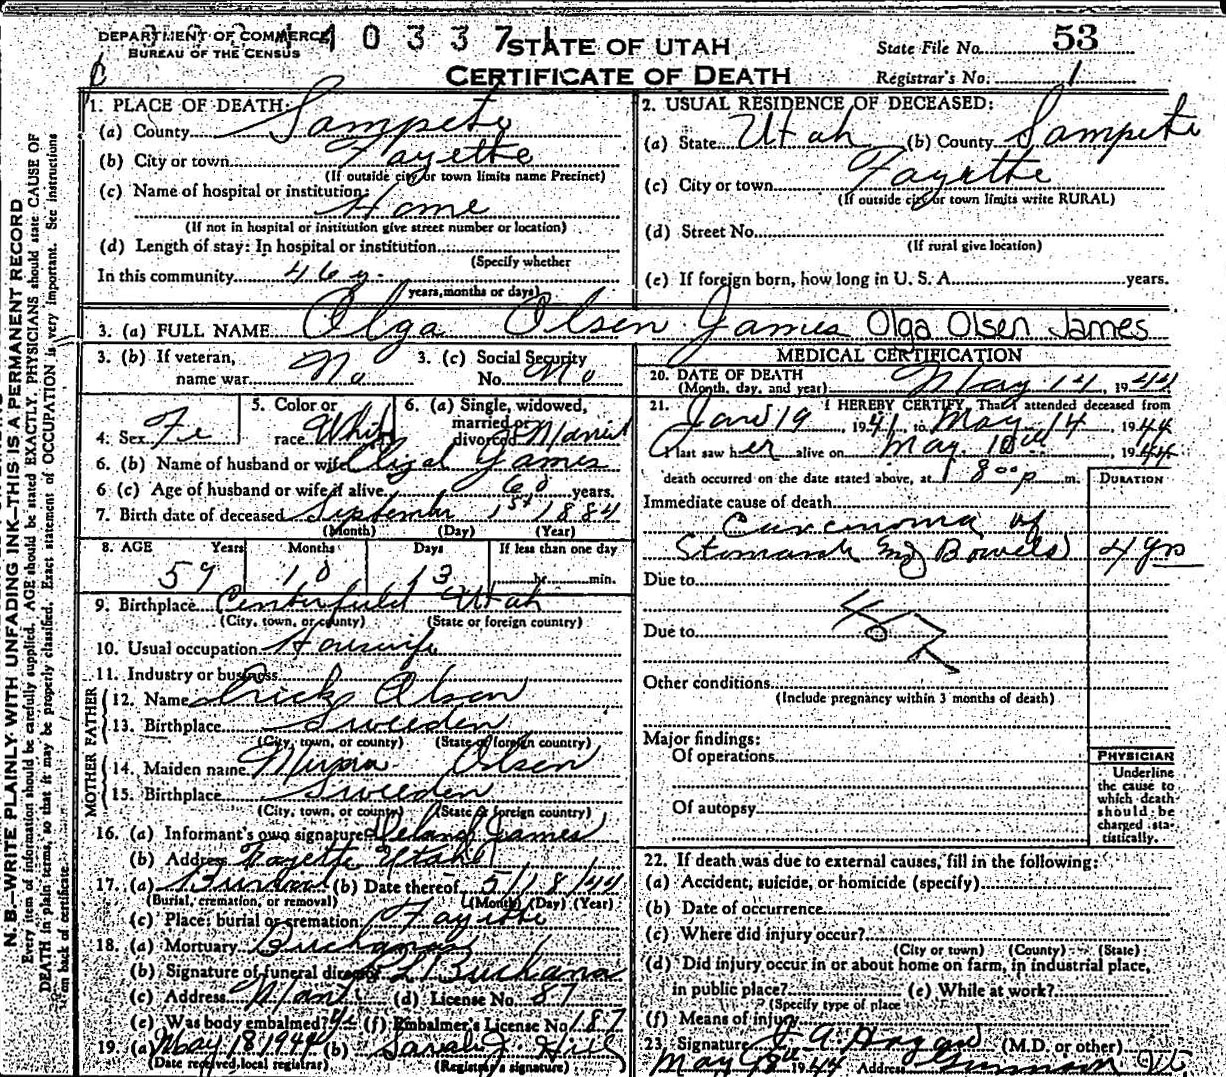 DEPARTMENT OF COMMERCE
BUREAU OF THE CENSUS
4 0 3 3 7
STATE OF UTAH
CERTIFICATE OF DEATH
State File No. 53
Registrar's No. 1
N. B.—WRITE PLAINLY WITH UNFADING INK—THIS IS A PERMANENT RECORD
Every item of information should be carefully supplied. AGE should be stated EXACTLY. PHYSICIANS should state CAUSE OF
DEATH in plain terms, so that it may be properly classified. Exact statement of OCCUPATION is very important. See instructions
on back of certificate.
1. PLACE OF DEATH:
(a) County Sampete
(b) City or town Fayette
(If outside city or town limits name Precinct)
(c) Name of hospital or institution:
Home
(If not in hospital or institution give street number or location)
(d) Length of stay: In hospital or institution
(Specify whether
In this community 46 y.
years, months or days)
2. USUAL RESIDENCE OF DECEASED:
(a) State Utah (b) County Sampete
(c) City or town Fayette
(If outside city or town limits write RURAL)
(d) Street No.
(If rural give location)
(e) If foreign born, how long in U. S. A. years.
3. (a) FULL NAME Olga Olsen James Olga Olsen James
3. (b) If veteran, name war No
3. (c) Social Security No. No
4. Sex Fe
5. Color or race White
6. (a) Single, widowed, married or divorced Married
6. (b) Name of husband or wife James
6 (c) Age of husband or wife if alive 60 years.
7. Birth date of deceased September 1st 1884
(Month) (Day) (Year)
8. AGE Years Months Days If less than one day
59 10 13 hr. min.
9. Birthplace Centerfield Utah
(City, town, or county) (State or foreign country)
10. Usual occupation Houswife
11. Industry or business
FATHER
12. Name Erick Olson
13. Birthplace Sweeden
(City, town, or county) (State or foreign country)
MOTHER
14. Maiden name Olsen
15. Birthplace Sweeden
(City, town, or county) (State or foreign country)
16. (a) Informant's own signature Leland James
(b) Address Fayette Utah
17. (a) Burial (b) Date thereof 5/18/44
(Burial, cremation, or removal) (Month) (Day) (Year)
(c) Place: burial or cremation Fayette
18. (a) Mortuary Buchanan
(b) Signature of funeral director Buchanan
(c) Address Manti (d) License No. 87
(e) Was body embalmed? (f) Embalmer's License No. 187
19. (a) May 18 1944 (b) Sarah J. Hill
(Date received local registrar) (Registrar's signature)
MEDICAL CERTIFICATION
20. DATE OF DEATH
(Month, day, and year) May 14, 1944
21. I HEREBY CERTIFY, That I attended deceased from
Jan 19 1941, to May 14, 1944
I last saw her alive on May 10th, 1944
death occurred on the date stated above, at 8 00 p m.
DURATION
Immediate cause of death
Carcinoma of
Stomach and Bowels 4 yrs
Due to
Due to
Other conditions
(Include pregnancy within 3 months of death)
Major findings:
Of operations
Of autopsy
PHYSICIAN
Underline
the cause to
which death
should be
charged sta-
tistically.
22. If death was due to external causes, fill in the following:
(a) Accident, suicide, or homicide (specify)
(b) Date of occurrence
(c) Where did injury occur?
(City or town) (County) (State)
(d) Did injury occur in or about home on farm, in industrial place,
in public place? (e) While at work?
(Specify type of place
(f) Means of injury
23 Signature J. A. Hagan (M.D. or other)
May 18th 1944 Address Gunnison Ut